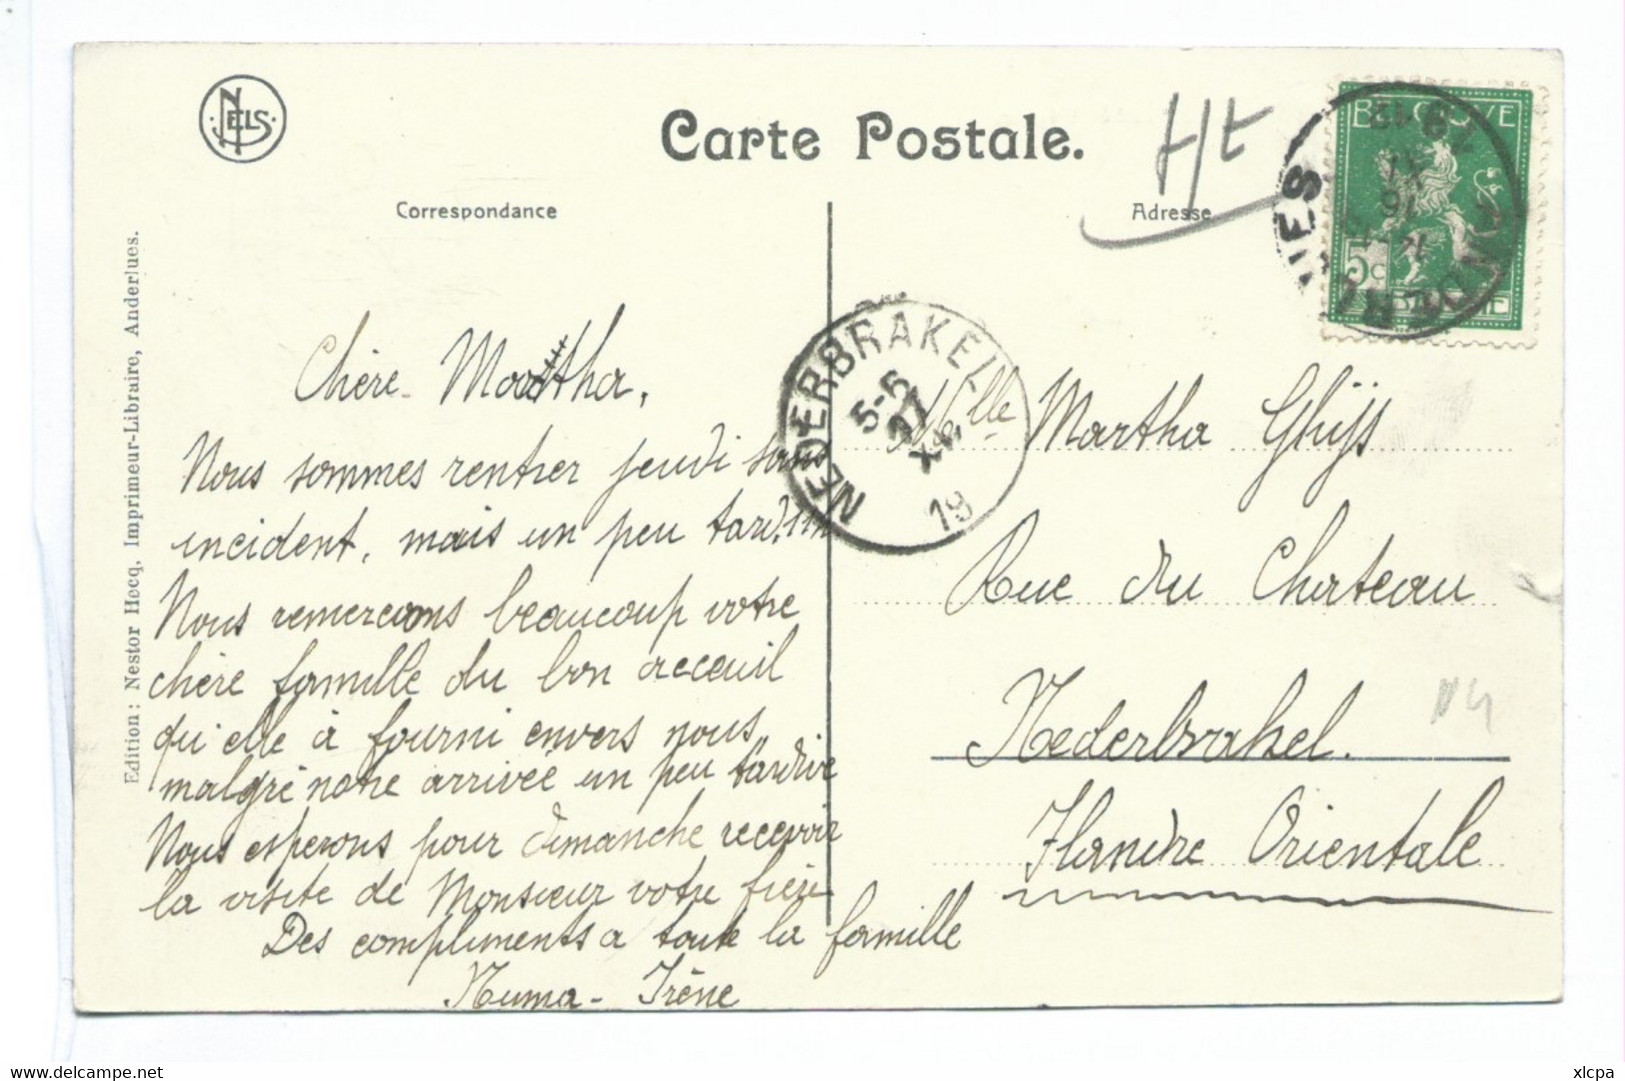 NELS
Carte Postale.
Correspondance
Adresse
H/t
BELGIQUE
5c
NEDERBRAKEL
5-6
19
Edition: Nestor Hocq, Imprimeur-Libraire, Anderlues.
Chère Martha,
Nous sommes rentrer jeudi sans
incident, mais un peu tard.
Nous remercions beaucoup votre
chère famille du bon acceuil
qu'elle à fourni envers nous,
malgré notre arrivée un peu tardive
Nous esperons pour dimanche recevoir
la visite de Monsieur votre frère
Des compliments a toute la famille
Numa - Irène
Mlle Martha Ghijs
Rue du Chateau
Nederbrakel.
Flandre Orientale
N4
delcampe.net
xlcpa